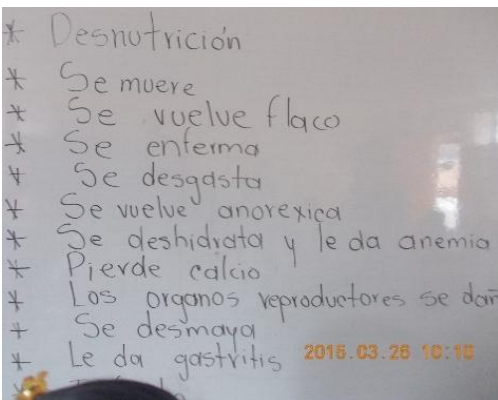 * Desnutrición
* Se muere
* Se vuelve flaco
* Se enferma
* Se desgasta
* Se vuelve anorexica
* Se deshidrata y le da anemia
* Pierde calcio
* Los organos reproductores se dañ
* Se desmaya
* Le da gastritis 2015.03.26 10:16